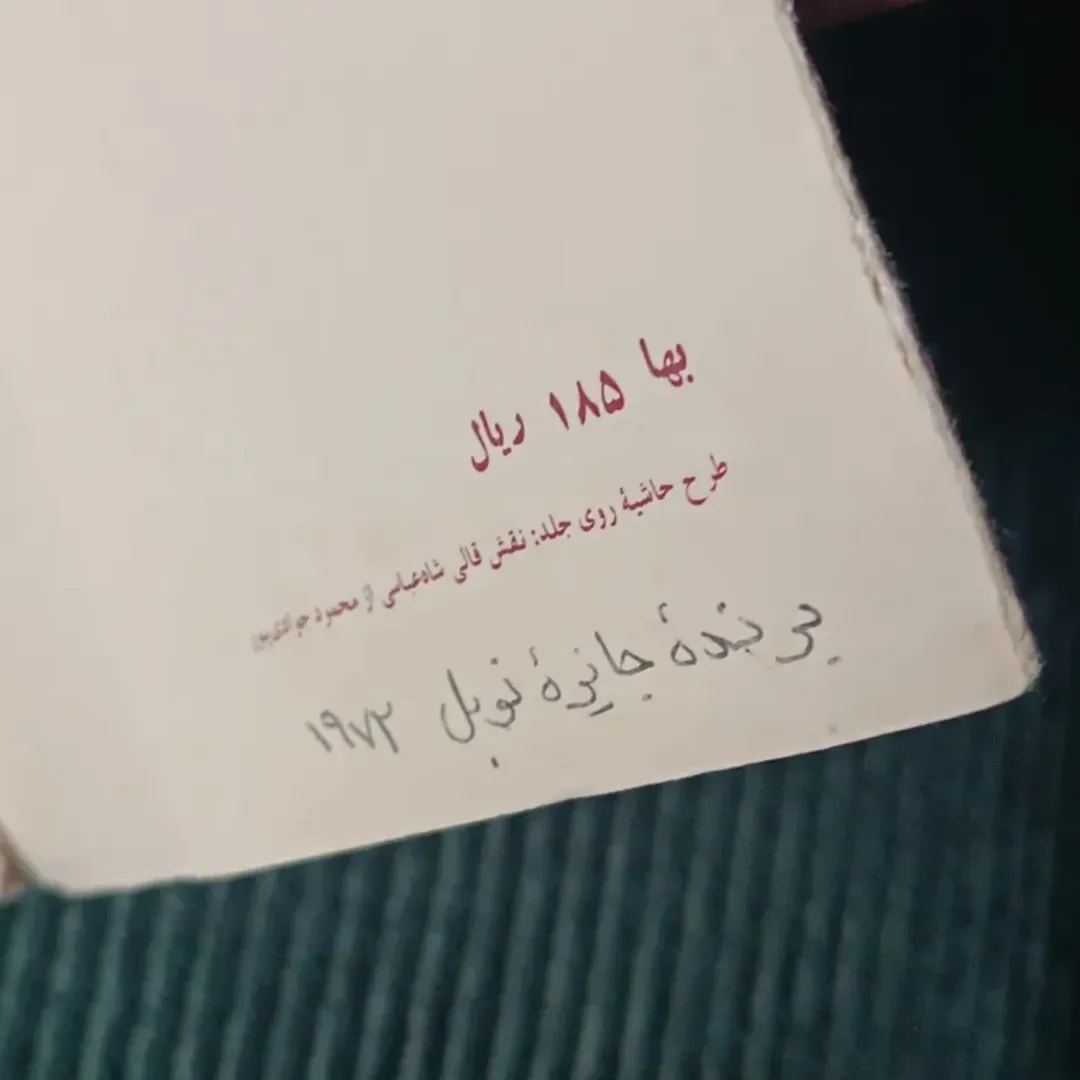 بها ۱۸۵ ریال
طرح حاشیهٔ روی جلد: نقش قالی شاه‌عباسی از محمود
برندهٔ جایزهٔ نوبل ۱۹۷۲